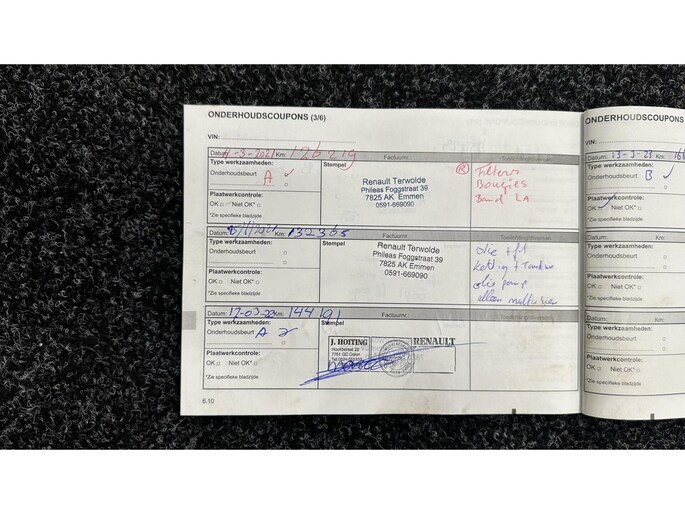 ONDERHOUDSCOUPONS (3/6)
VIN:
Datum: 4-3-2021 Km: 126719 Factuurnr.
Type werkzaamheden: Stempel
Onderhoudsbeurt A
Renault Terwolde
Phileas Foggstraat 39
7825 AK Emmen
0591-669090
R Filters
Bougies
Band LA
Plaatwerkcontrole:
OK Niet OK*
*Zie specifieke bladzijde
Datum: Km: 132365 Factuurnr.
Type werkzaamheden: Stempel
Onderhoudsbeurt
Renault Terwolde
Phileas Foggstraat 39
7825 AK Emmen
0591-669090
olie + filt
ketting +
olie pomp
alleen
Plaatwerkcontrole:
OK Niet OK*
*Zie specifieke bladzijde
Datum: 17-03-22 Km: 144191 Factuurnr.
Type werkzaamheden: Stempel
Onderhoudsbeurt A
J. HOITING
7751 GC Dalen
RENAULT
Plaatwerkcontrole:
OK Niet OK*
*Zie specifieke bladzijde
6.10
ONDERHOUDSCOUPONS
VIN:
Datum: 13-3-23 Km:
Type werkzaamheden:
Onderhoudsbeurt B
Plaatwerkcontrole:
OK Niet OK*
*Zie specifieke bladzijde
Datum: Km:
Type werkzaamheden:
Onderhoudsbeurt
Plaatwerkcontrole:
OK Niet OK*
*Zie specifieke bladzijde
Datum: Km:
Type werkzaamheden:
Onderhoudsbeurt
Plaatwerkcontrole:
OK Niet OK*
*Zie specifieke bladzijde